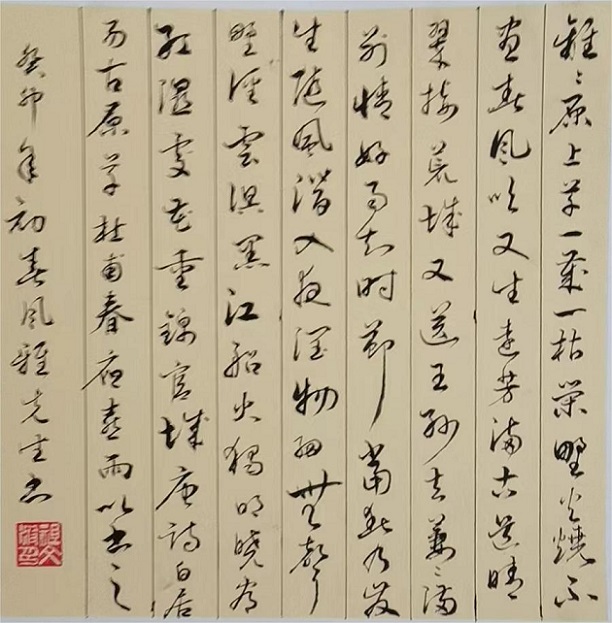 離〻原上草一歲一枯榮野火燒不
盡春風吹又生遠芳滿古道晴
翠接荒城又送王孫去萋〻滿
別情好雨知時節當春乃發
生隨風潛入夜潤物細無聲
野徑雲俱黑江船火獨明曉看
紅濕處花重錦官城唐詩白居
易古原草杜甫春夜喜雨以書之
癸卯年初春風雅先生書